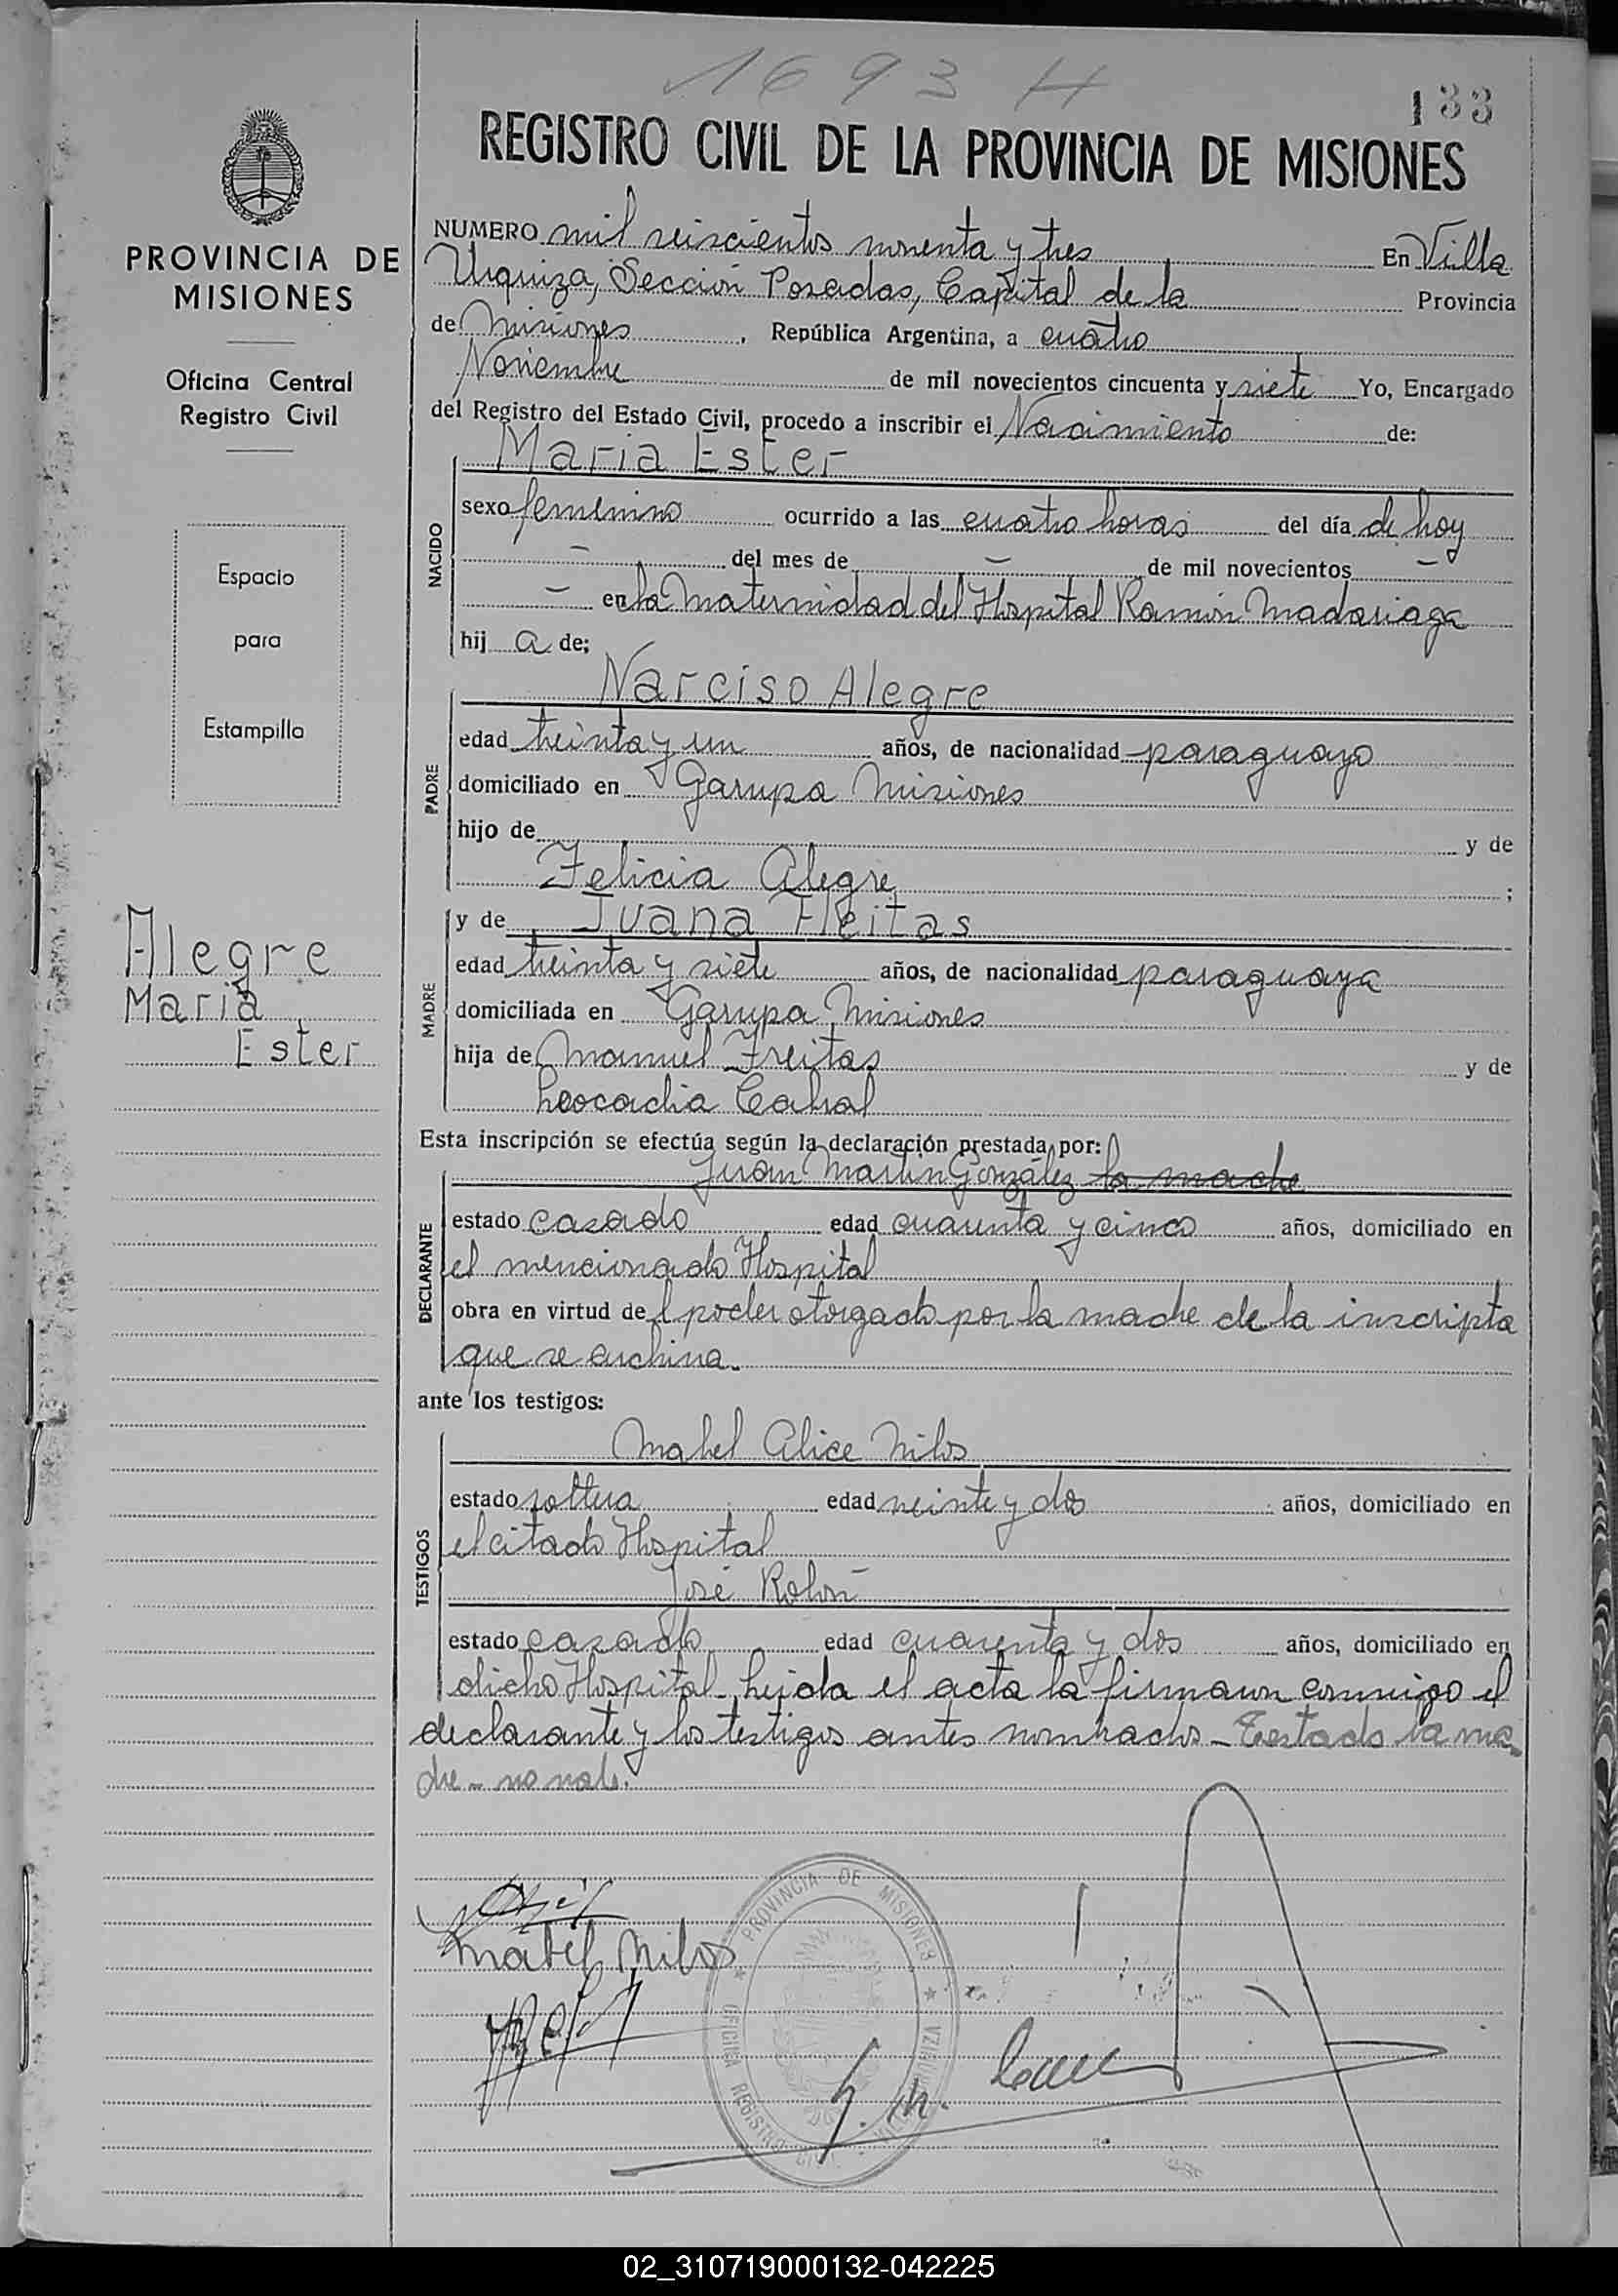 1693 H
133
REGISTRO CIVIL DE LA PROVINCIA DE MISIONES
PROVINCIA DE
MISIONES
Oficina Central
Registro Civil
Espacio
para
Estampilla
Alegre
Maria
Ester
NUMERO mil seiscientos noventa y tres En Villa
Urquiza, Sección Posadas, Capital de la Provincia
de Misiones, República Argentina, a cuatro
Noviembre de mil novecientos cincuenta y siete Yo, Encargado
del Registro del Estado Civil, procedo a inscribir el Nacimiento de:
NACIDO
Maria Ester
sexo femenino ocurrido a las cuatro horas del día de hoy
— del mes de — de mil novecientos —
— en la Maternidad del Hospital Ramón Madariaga
hij a de;
PADRE
Narciso Alegre
edad treinta y un años, de nacionalidad paraguayo
domiciliado en Garupa Misiones
hijo de y de
Felicia Alegre ;
MADRE
y de Juana Fleitas
edad treinta y siete años, de nacionalidad paraguaya
domiciliada en Garupa Misiones
hija de Manuel Freitas y de
Leocadia Cabral
Esta inscripción se efectúa según la declaración prestada por:
DECLARANTE
Juan Martin González la madre
estado casado edad cuarenta y cinco años, domiciliado en
el mencionado Hospital
obra en virtud de l poder otorgado por la madre de la inscripta
que se archiva.
ante los testigos:
TESTIGOS
Mabel Alice Nilos
estado soltera edad veinte y dos años, domiciliado en
el citado Hospital
José Rolón
estado casado edad cuarenta y dos años, domiciliado en
dicho Hospital. Leida el acta la firmaron conmigo el
declarante y los testigos antes nombrados - Testado la ma
dre - no vale.
Mabel Nilos
PROVINCIA DE MISIONES
OFICINA REGISTRO CIVIL
02_310719000132-042225